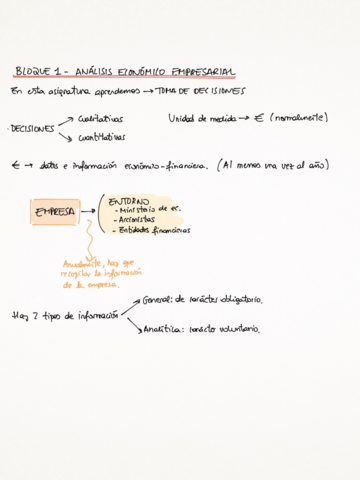 BLOQUE 1 - ANÁLISIS ECONÓMICO EMPRESARIAL
En esta asignatura aprendemos → TOMA DE DECISIONES
DECISIONES
Cualitativas
Cuantitativas
Unidad de medida → € (normalmente)
€ → datos e información económico-financiera. (Al menos una vez al año)
EMPRESA →
ENTORNO
- Ministerio de ec.
- Accionistas
- Entidades financieras
Anualmente, hay que
recopilar la información
de la empresa.
Hay 2 tipos de información
General: de carácter obligatorio.
Analítica: carácter voluntario.